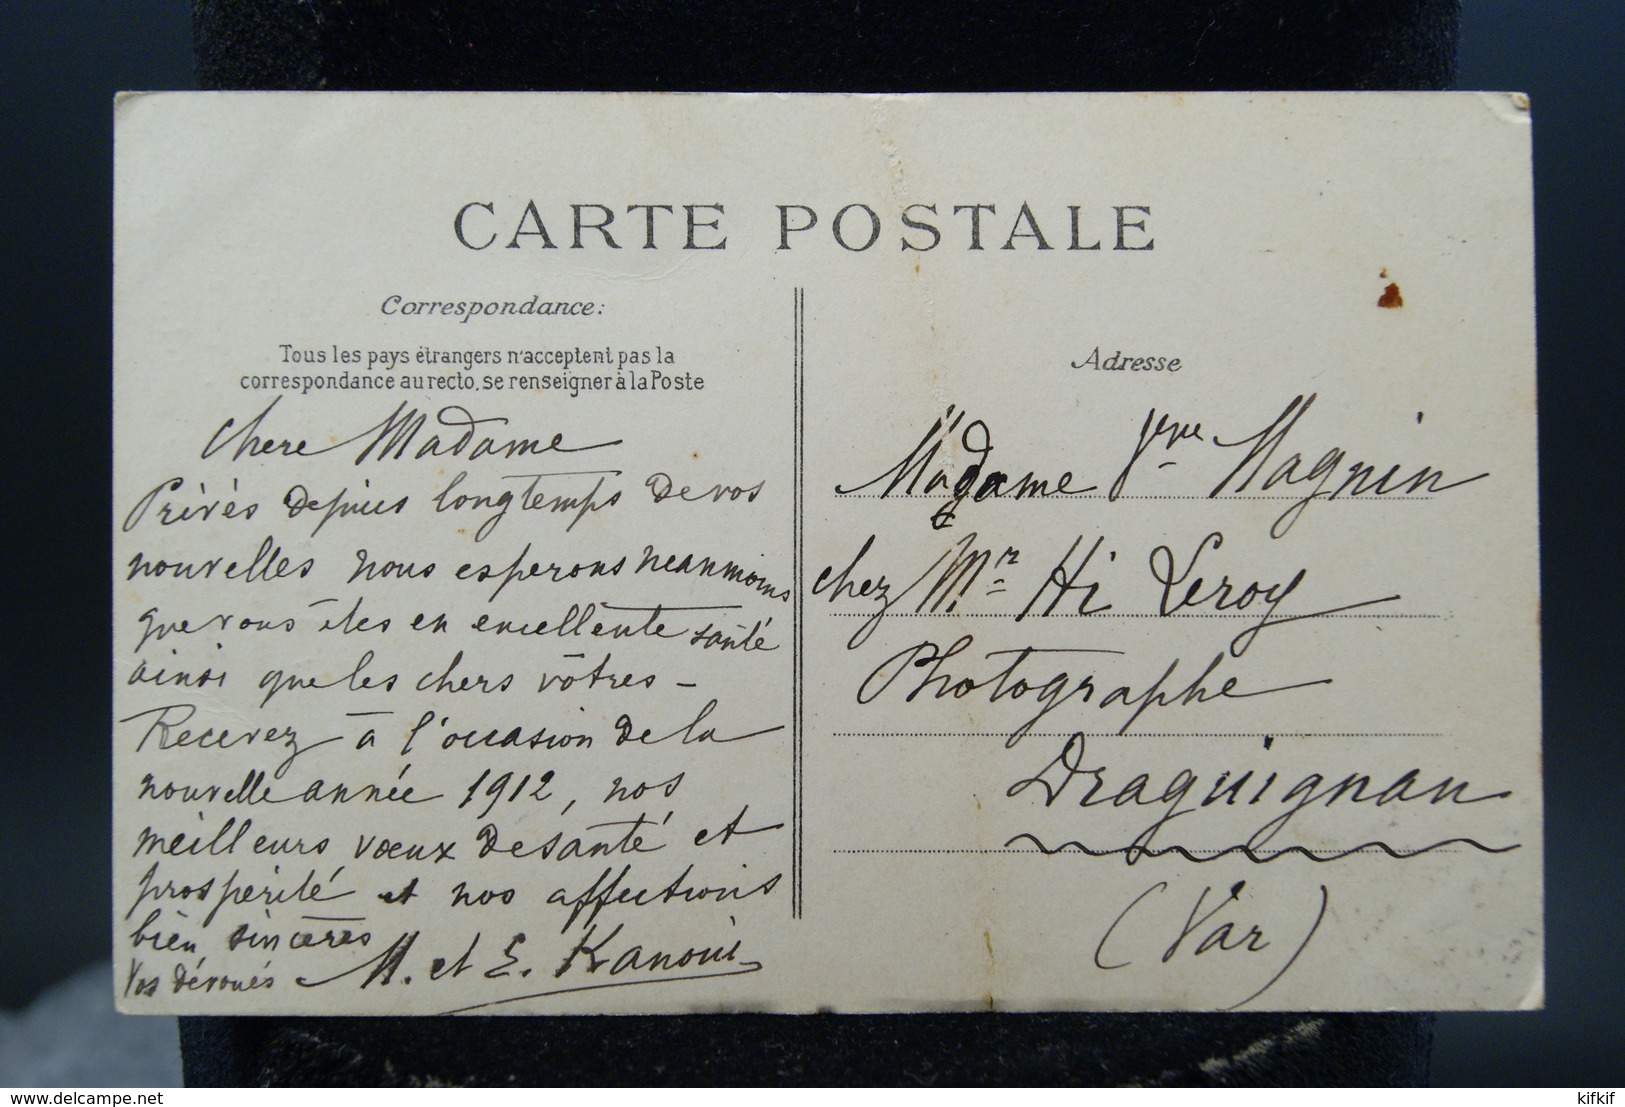 CARTE POSTALE
Correspondance:
Tous les pays étrangers n'acceptent pas la
correspondance au recto, se renseigner à la Poste
chere Madame
Privés depuis longtemps de vos
nouvelles nous esperons neanmoins
que vous êtes en excellente santé
ainsi que les chers vôtres -
Recevez à l'occasion de la
nouvelle année 1912, nos
meilleurs vœux de santé et
prospérité et nos affections
bien sincères
Vos dévoués M. et E. Kanoui
Adresse
Madame Vve Magnin
chez Mr Hi Leroy
Photographe
Draguignan
(Var)
delcampe.net
kifkif